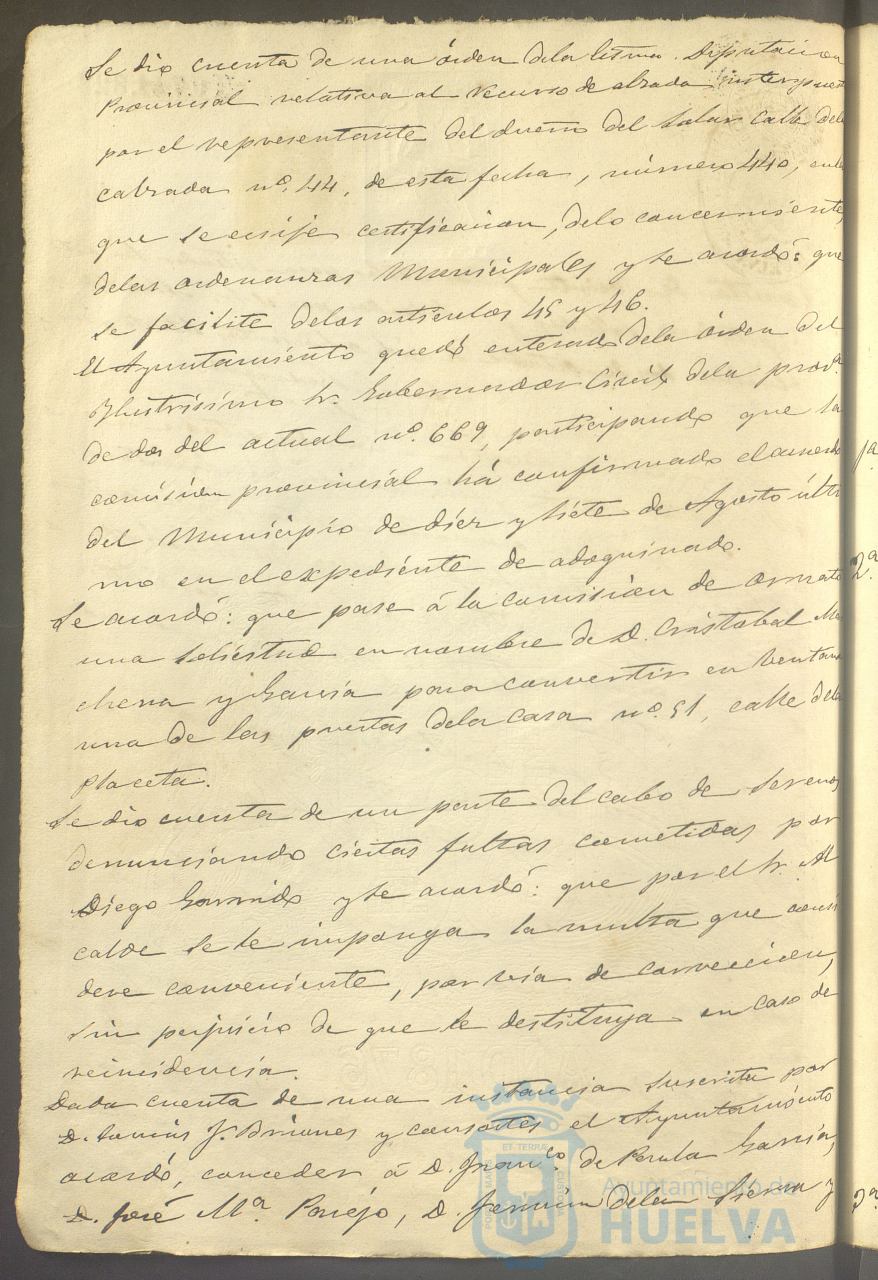 Se dio cuenta de una órden dela Iltma. Diputacion
Provincial relativa al recurso de alzada interpuest
por el representante del dueño del solar calle dela
calzada nº. 44, de esta fecha, número 440, en la
que se exije certificacion, delo concerniente,
delas ordenanzas Municipales y se acordó: que
se facilite delos articulos 45 y 46.
El Ayuntamiento quedó enterado dela órden del
Ylustrísimo Sr. Gobernador Civil dela provª.
de dos del actual nº. 669, participando que la
comision provincial há confirmado el acuerdo
del Municipio de diez y siete de Agosto últi
mo en el expediente de adoquinado.
Se acordó: que pase á la comision de ornato
una solicitud en nombre de D. Cristobal Ma
chena y Garcia para convertir en ventana
una de las puertas dela casa nº. 51, calle dela
Placeta.
Se dio cuenta de un parte del cabo de serenos
denunciando ciertas faltas cometidas por
Diego Garrido y se acordó: que por el Sr. Al
calde se le imponga la multa que consi
dere conveniente, por via de correccion,
sin perjuicio de que se le destituya en caso de
reincidencia.
Dada cuenta de una instancia suscrita por
D. Tomás J. Briones y consortes el Ayuntamiento
acordó, conceder á D. Franco. de Paula Garcia,
D. José Mª. Parejo, D. Fermin dela Sierra y
1ª
2ª
3ª
Ayuntamiento de
HUELVA